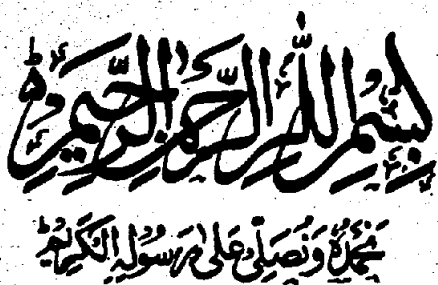 بِسْمِ اللهِ الرَّحْمٰنِ الرَّحِيْمِ
نَحْمَدُهٗ وَنُصَلِّیْ عَلٰی رَسُوْلِہِ الْکَرِیْمِ